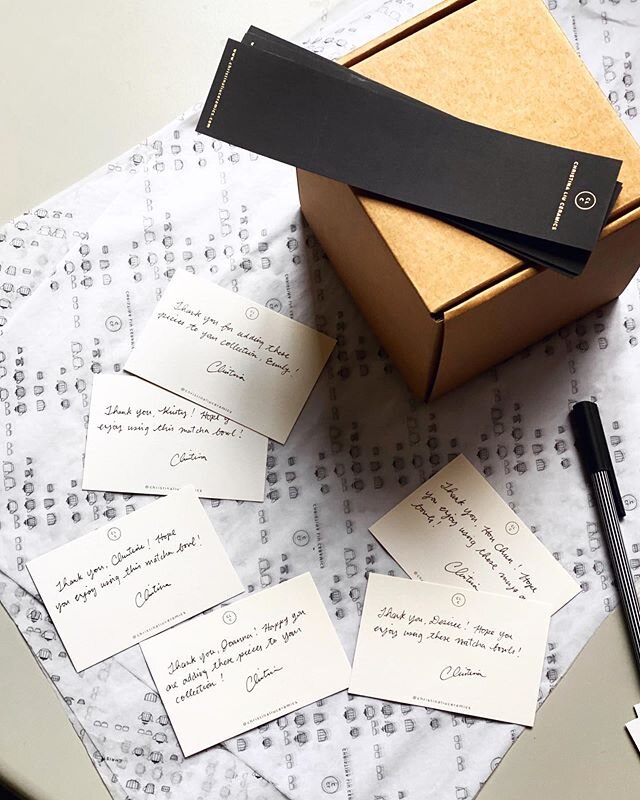 www.christinaliuceramics.com
CHRISTINA LIU CERAMICS
Thank you for adding these
pieces to your collection, Emily!
Christina
@christinaliuceramics
Thank you, Kirsty! Hope y
enjoy using this matcha bowl!
Christina
@christinaliuceramics
Thank you, Hope
you enjoy using this matcha bowl!
Christina
@christinaliuceramics
Thank you, Joanna! Happy you
are adding these pieces to your
collection!
Christina
@christinaliuceramics
Thank you, Han Chun! Hope
you enjoy using these mugs &
bowls!
Christina
Thank you, Desiree! Hope you
enjoy using these matcha bowls!
Christina
@christinaliuceramics